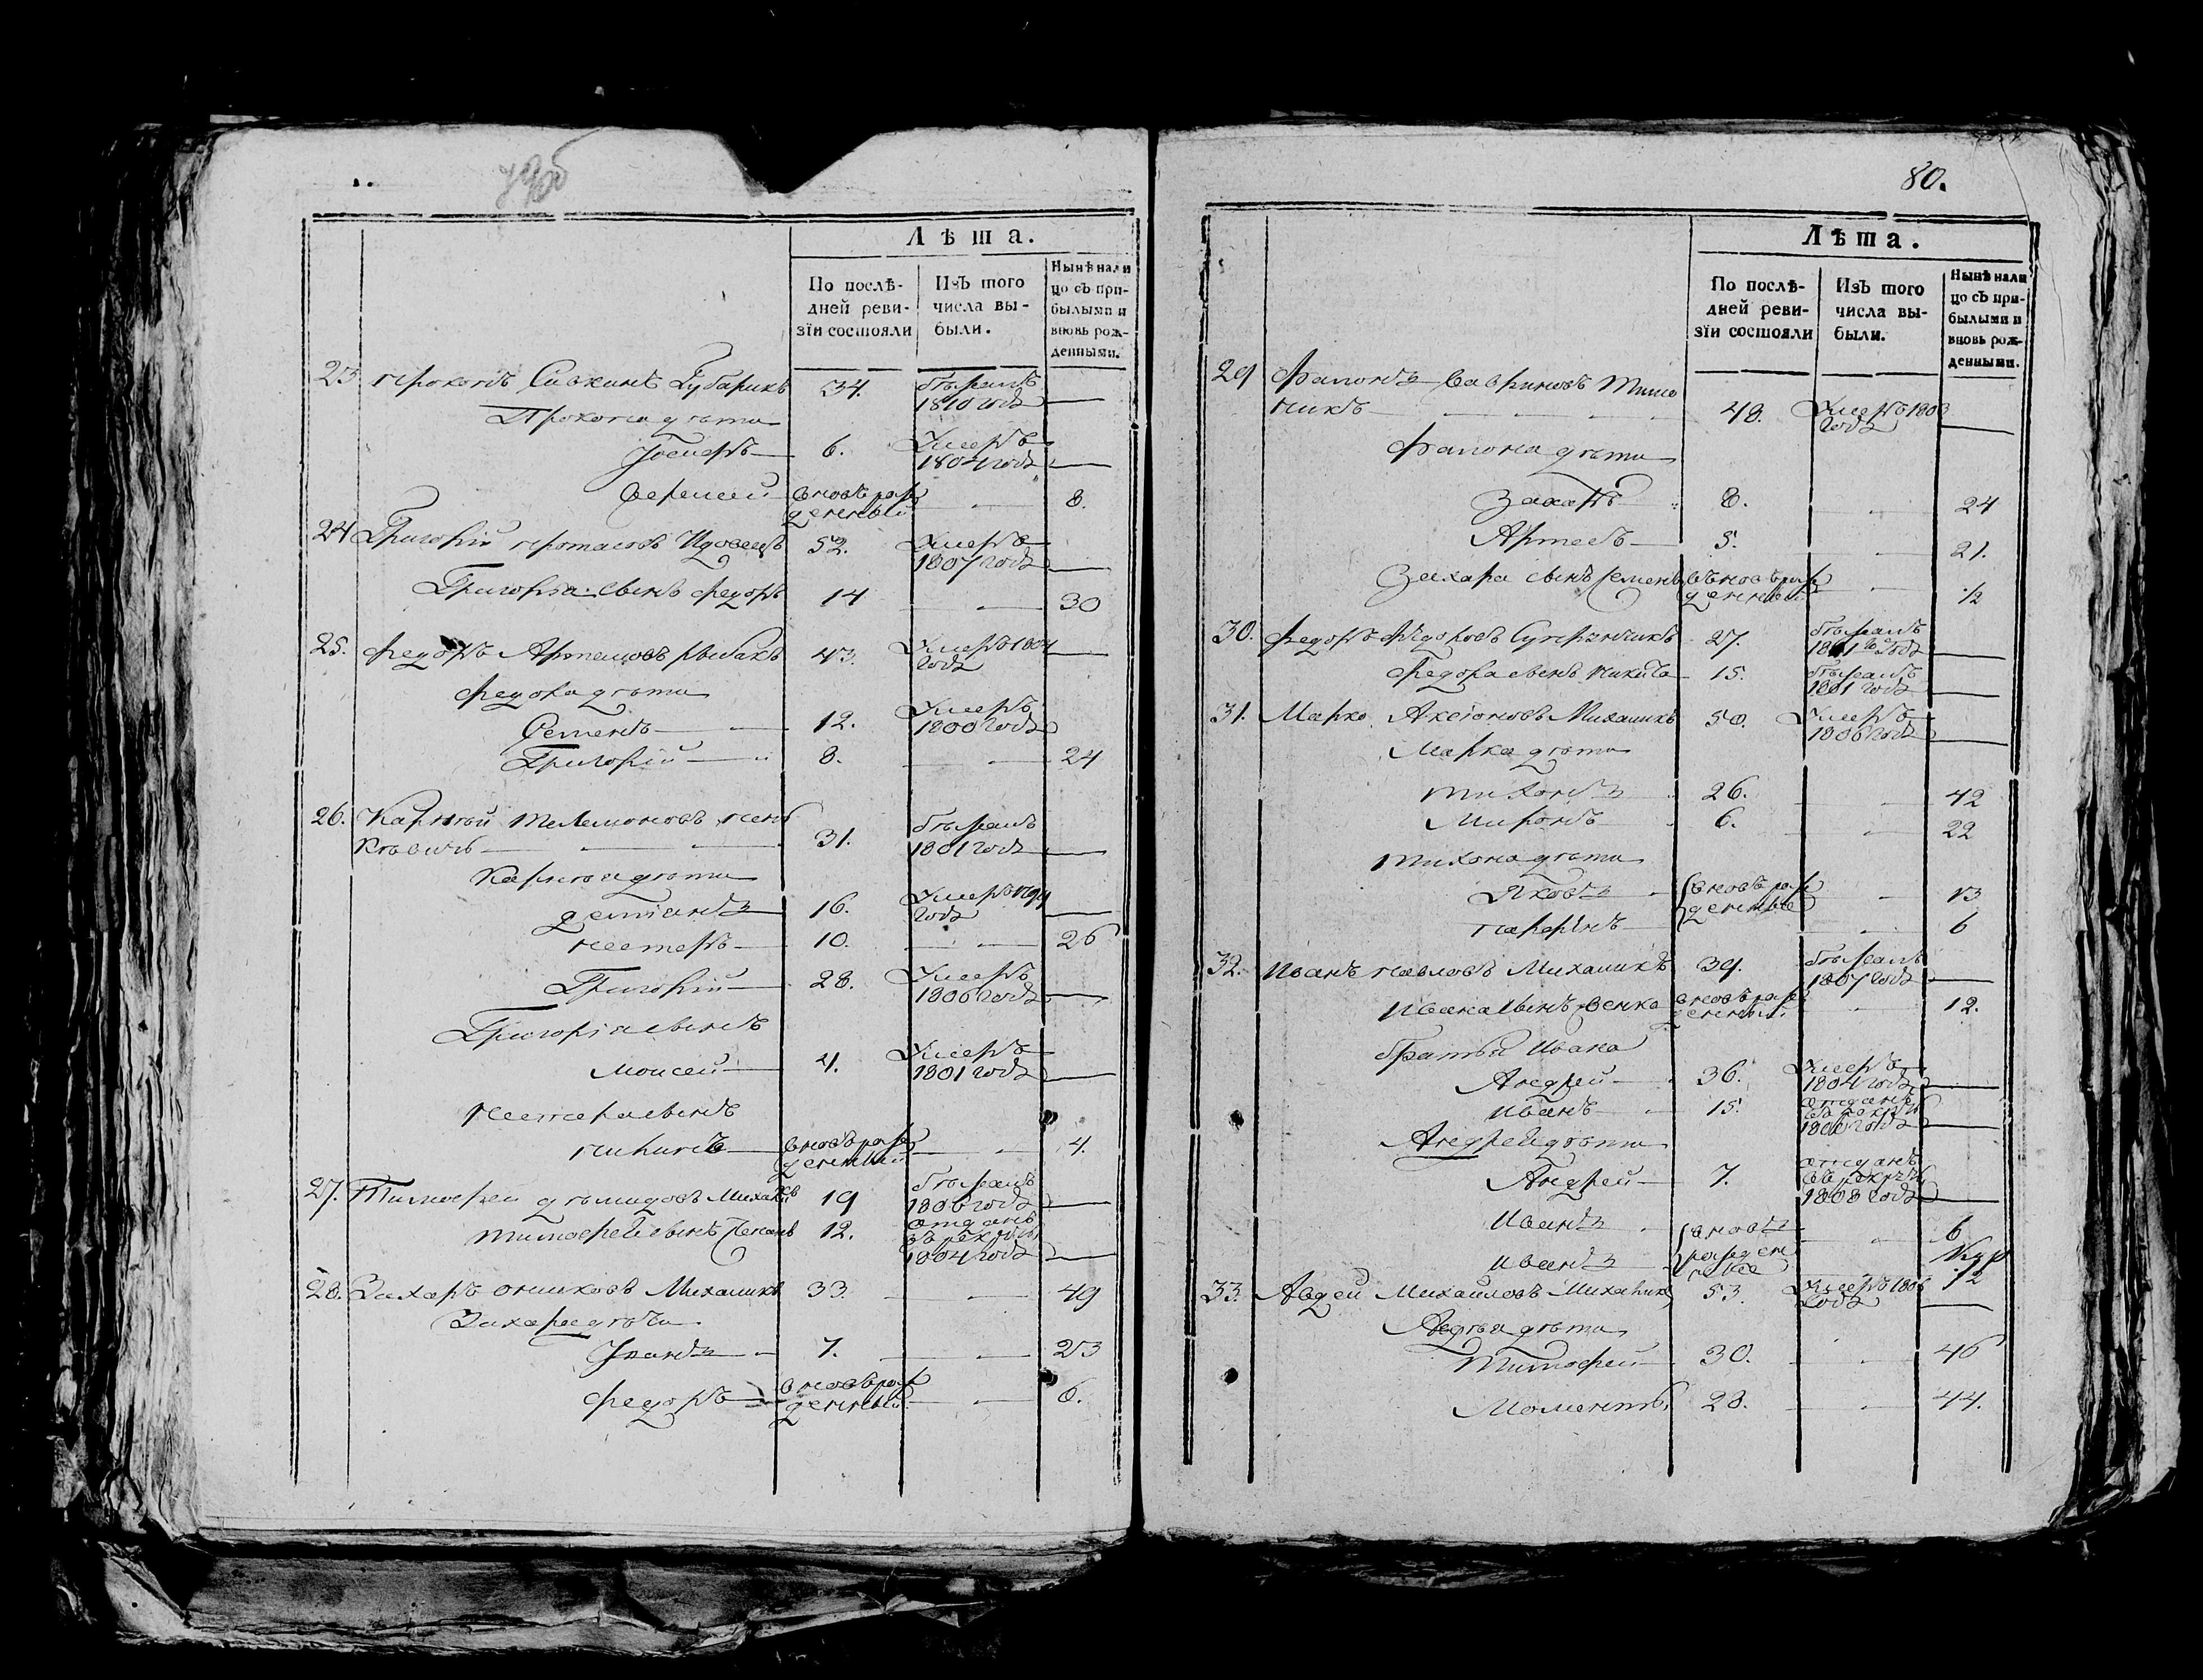 79об
Лѣта.
По послѣ-
дней реви-
зіи состояли
Изъ того
числа вы-
были.
Нынѣ нали
цо съ при-
былыми и
вновь рож-
денными.
23 прокопъ Савкинъ Губарикъ 34. бѣжалъ
1810 года
Прокопа дѣти
Іосифъ 6. Умеръ
1804 года
вновь рож
денный 8.
24 Григорій протасовъ 52. Умеръ
1807 года
Григорія сынъ федоръ 14 30
25. федоръ Артемовъ рыбакъ 43. Умеръ 1804
года
федора дѣти
Семенъ 12. Умеръ
1800 года
Григорій 8. 24
26. Карпѣй Телемоновъ
31. бѣжалъ
1801 года
Карпѣя дѣти
демянъ 16. Умеръ 1799
года
нестеръ 10. 26
Григорій 28. Умеръ
1806 года
Григорія сынъ
Моисей 4. Умеръ
1801 года
нестера сынъ
вновь рож
денный 4.
27. Тимофей дѣмидовъ 19 бѣжалъ
1806 года
тимофея сынъ Степанъ 12. отданъ
въ рекруты
1804 года
28. Захаръ Михаликъ 33. 49
Захара дѣти
7. 23
федоръ вновь рож
денный 6.
80.
Лѣта.
По послѣ-
дней реви-
зіи состояли
Изъ того
числа вы-
были.
Нынѣ нали
цо съ при-
былыми и
вновь рож-
денными.
29 Фапонъ
48. Умеръ 1803
года
Фапона дѣти
Захаръ 8. 24
Артемъ 5. 21.
Захара сынъ Семенъ вновь рож
денный 1/2
30. федоръ Фѣдоровъ 27. бѣжалъ
1801 го года
федора сынъ никита 15. бѣжалъ
1801 года
31. Марко Аксіоновъ Михаликъ 50. Умеръ
1806 года
Марка дѣти
тихонъ 26. 42
Миронъ 6. 22
тихона дѣти
Яковъ вновь рож 13
денные
6
32. иванъ павловъ Михаликъ 39. бѣжалъ
1807 года
ивана сынъ вновь рож
денный 12.
братья ивана
Андрей 36. Умеръ
1804 года
иванъ 15. отданъ
въ рекруты
года
Андрея дѣти
Андрей 7. отданъ
въ рекруты
1808 года
иванъ вновь 6
иванъ рожден
ные 1/2
33. Авдей Михайловъ Михалик 53. Умеръ 1806
года
Авдѣя дѣти
Тимофей 30. 46
28. 44.